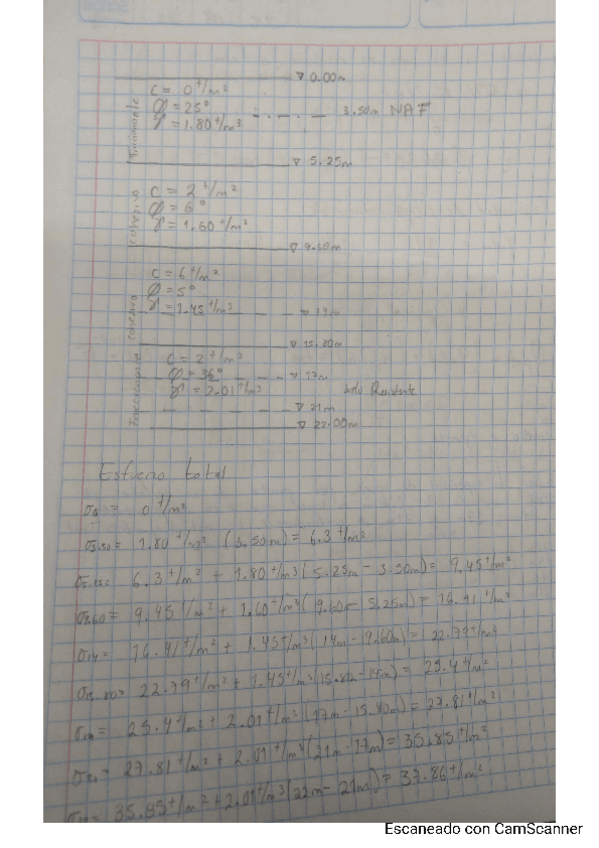 ▽ 0.00m
C = 0 t/m²
φ = 25°
γ = 1.80 t/m³
3.50m NAF
▽ 5.25m
C = 2 t/m²
φ = 6°
γ = 1.60 t/m³
▽ 9.60m
C = 6 t/m²
φ = 5°
γ = 1.45 t/m³
14m
▽ 15.80m
C = 2 t/m²
φ = 36°
▽ 17m
γ = 2.01 t/m³
▽ 21m
▽ 22.00m
Esfuerzo total
σ0 = 0 t/m²
σ3.50 = 1.80 t/m³ (3.50m) = 6.3 t/m²
σ5.25= 6.3 t/m² + 1.80 t/m³ (5.25m - 3.50m) = 9.45 t/m²
σ9.60= 9.45 t/m² + 1.60 t/m³ (9.60m - 5.25m) = 16.41 t/m²
σ14= 16.41 t/m² + 1.45 t/m³ (14m - 9.60m) = 22.79 t/m²
σ15.80= 22.79 t/m² + 1.45 t/m³ (15.80m - 14m) = 25.4 t/m²
25.4 t/m² + 2.01 t/m³ (17m - 15.80m) = 27.81 t/m²
27.81 t/m² + 2.01 t/m³ (21m - 17m) = 35.85 t/m²
35.85 t/m² + 2.01 t/m³ (22m - 21m) = 37.86 t/m²
Escaneado con CamScanner